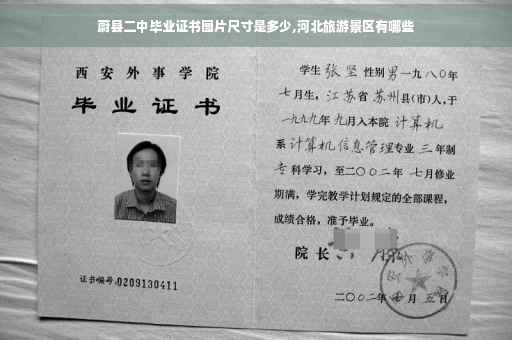 蔚县二中毕业证书图片尺寸是多少,河北旅游景区有哪些
西安外事学院
毕业证书
证书编号:0209130411
学生 张坚 性别 男 一九八〇年
七月生, 江苏省 苏州县(市)人,于
一九九九年 九月入本院 计算机
系 计算机信息管理专业 三 年制
专 科学习, 至二〇〇二年 七月修业
期满, 学完教学计划规定的全部课程,
成绩合格, 准予毕业。
院长
二〇〇二年 七月 五日